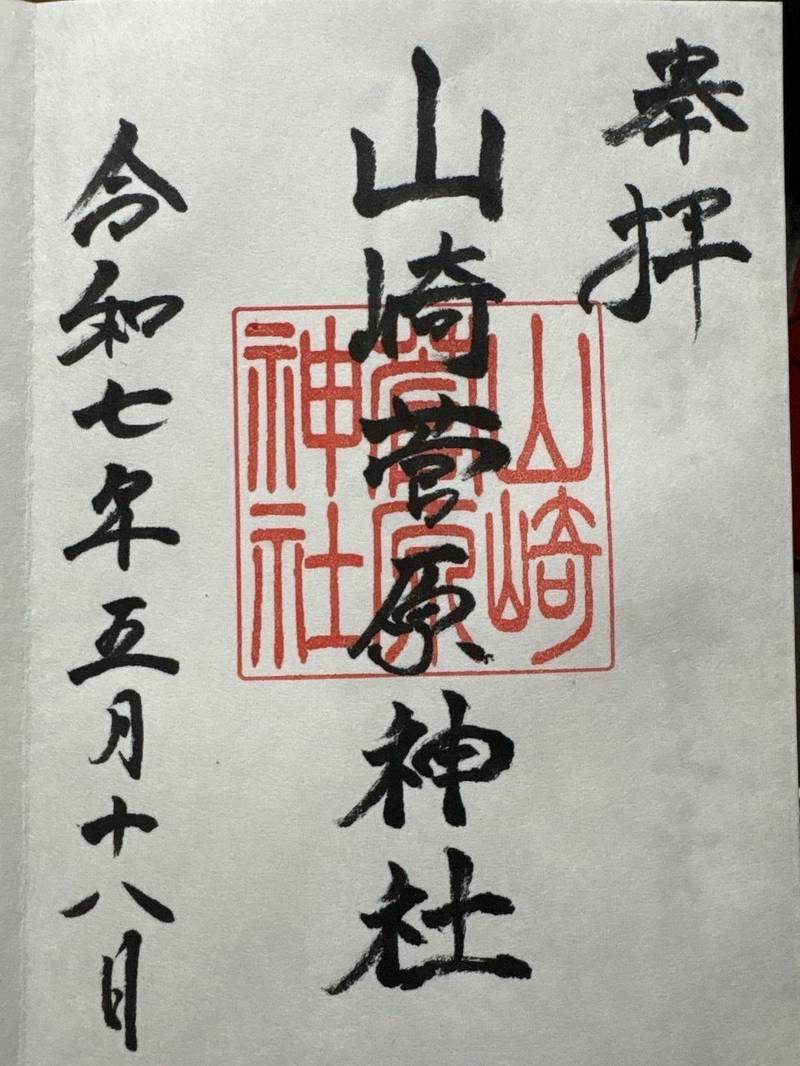 奉拝
山崎菅原神社
山崎
菅原
神社
令和七年五月十八日